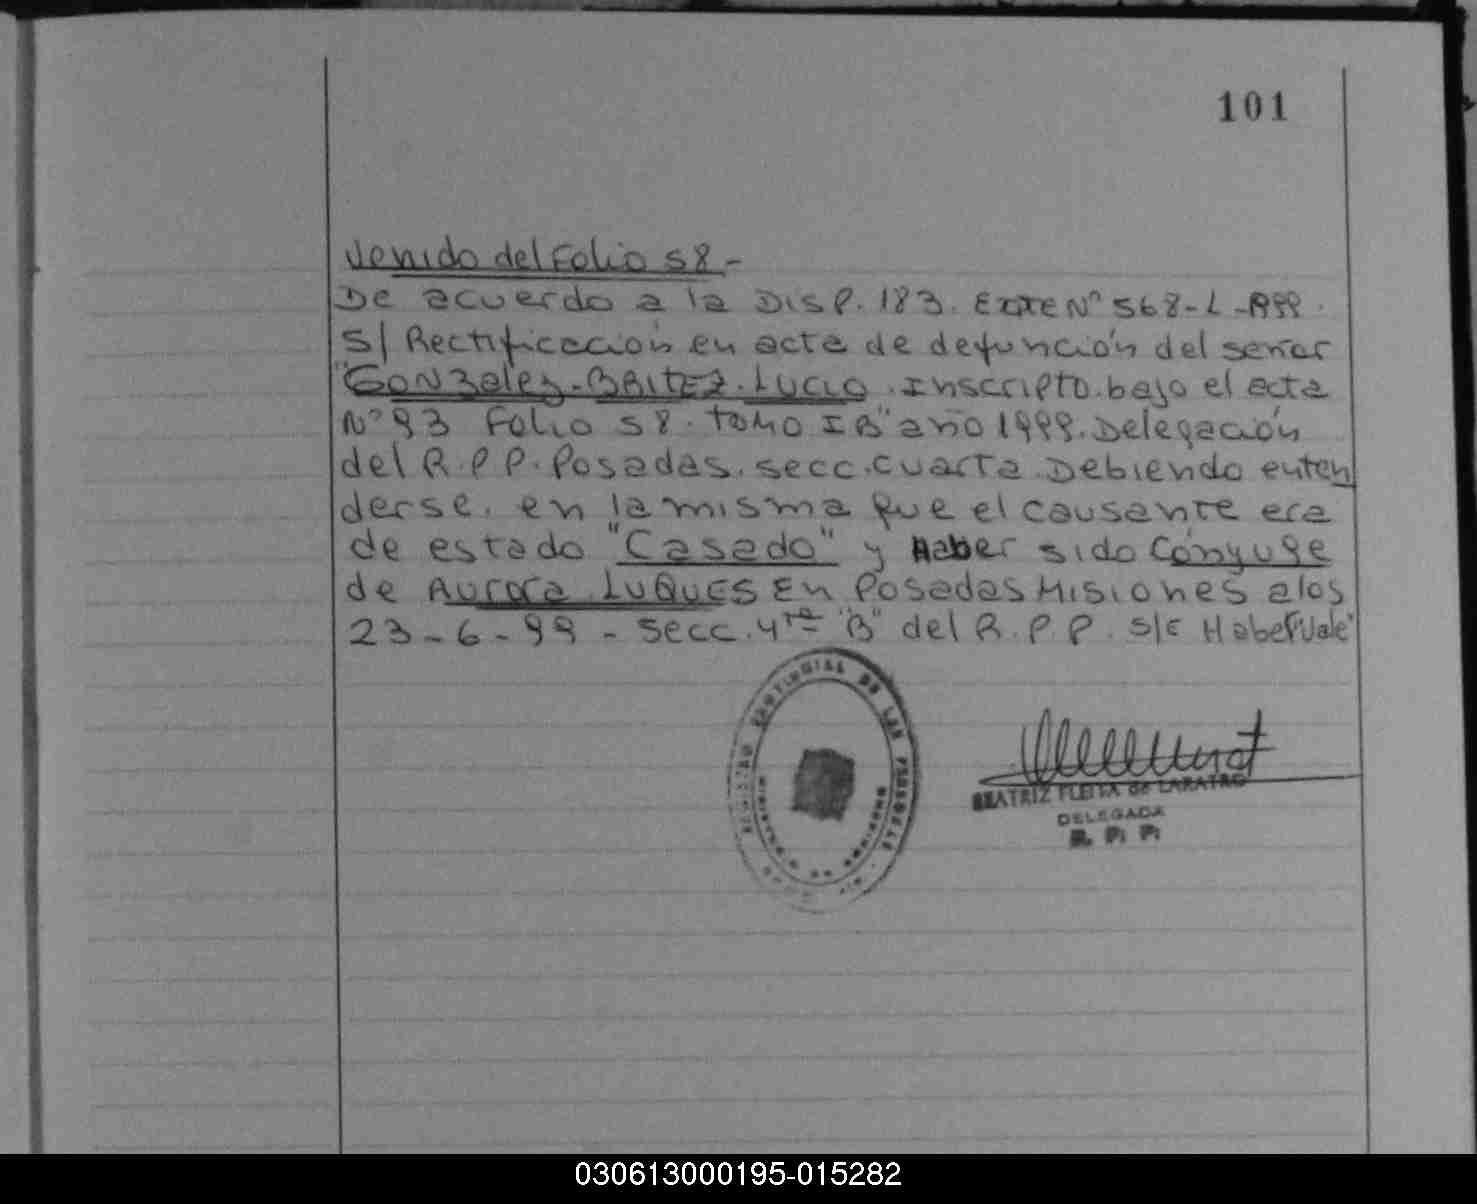 101
Venido del Folio 58-
De acuerdo a la DISP. 183. EXPTE Nº 568-L-1999.
S/ Rectificación en acta de defunción del señor
"Gonzalez-BRITEZ. LUCIO. Inscripto. bajo el acta
Nº 93 Folio 58. Tomo I B" año 1999. Delegación
del R.P.P. Posadas. secc. cuarta. Debiendo enten
derse. en la misma que el causante era
de estado "Casado" y Haber sido Cónyuge
de Aurora LUQUES En Posadas Misiones a los
23-6-99- Secc. 4ta "B" del R.P.P. S/E Haber "Vale"
REGISTRO PROVINCIAL DE LAS PERSONAS
MINISTERIO DE GOBIERNO
BEATRIZ FLEITA de LARATRO
DELEGADA
R. P. P.
030613000195-015282